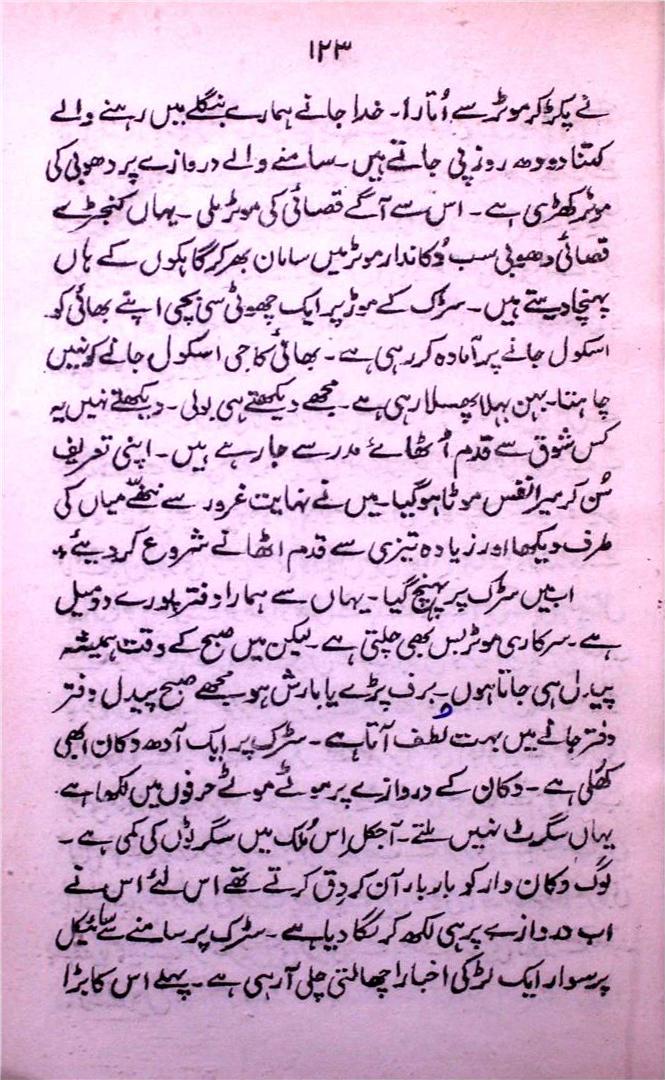 ۱۲۳
نے پکڑ کر موٹر سے اُتارا۔ خدا جانے ہمارے بنگلے میں رہنے والے
کتنا دودھ روز پی جاتے ہیں۔ سامنے والے دروازے پر دھوبی کی
موٹر کھڑی ہے۔ اس سے آگے قصائی کی موٹر ملی۔ یہاں کنجڑے
قصائی دھوبی سب دُکاندار موٹر میں سامان بھر کر گاہکوں کے ہاں
پہنچا دیتے ہیں۔ سڑک کے موڑ پر ایک چھوٹی سی بچی اپنے بھائی کو
اسکول جانے پر آمادہ کر رہی ہے۔ بھائی کا جی اسکول جانے کو نہیں
چاہتا۔ بہن بہلا پھسلا رہی ہے۔ مجھے دیکھتے ہی بولی۔ دیکھتے نہیں یہ
کس شوق سے قدم اُٹھائے مدرسے جا رہے ہیں۔ اپنی تعریف
سُن کر میرا نفس موٹا ہو گیا۔ میں نے نہایت غرور سے ننھے میاں کی
طرف دیکھا اور زیادہ تیزی سے قدم اٹھانے شروع کر دیئے ٭
اب میں سڑک پر پہنچ گیا۔ یہاں سے ہمارا دفتر پورے دو میل
ہے۔ سرکاری موٹر بس بھی چلتی ہے۔ لیکن میں صبح کے وقت ہمیشہ
پیدل ہی جاتا ہوں۔ برف پڑے یا بارش ہو مجھے صبح پیدل دفتر
دفتر جانے میں بہت لُطف آتا ہے۔ سڑک پر ایک آدھ دکان ابھی
کھُلی ہے۔ دکان کے دروازے پر موٹے موٹے حرفوں میں لکھا ہے
یہاں سگرٹ نہیں ملتے۔ آجکل اس مُلک میں سگرٹوں کی کمی ہے۔
لوگ دکان دار کو بار بار آن کر دِق کرتے تھے اس لئے اس نے
اب دروازے پر ہی لکھ کر لگا دیا ہے۔ سڑک پر سامنے سے سائیکل
پر سوار ایک لڑکی اخبار اچھالتی چلی آ رہی ہے۔ پہلے اس کا بڑا